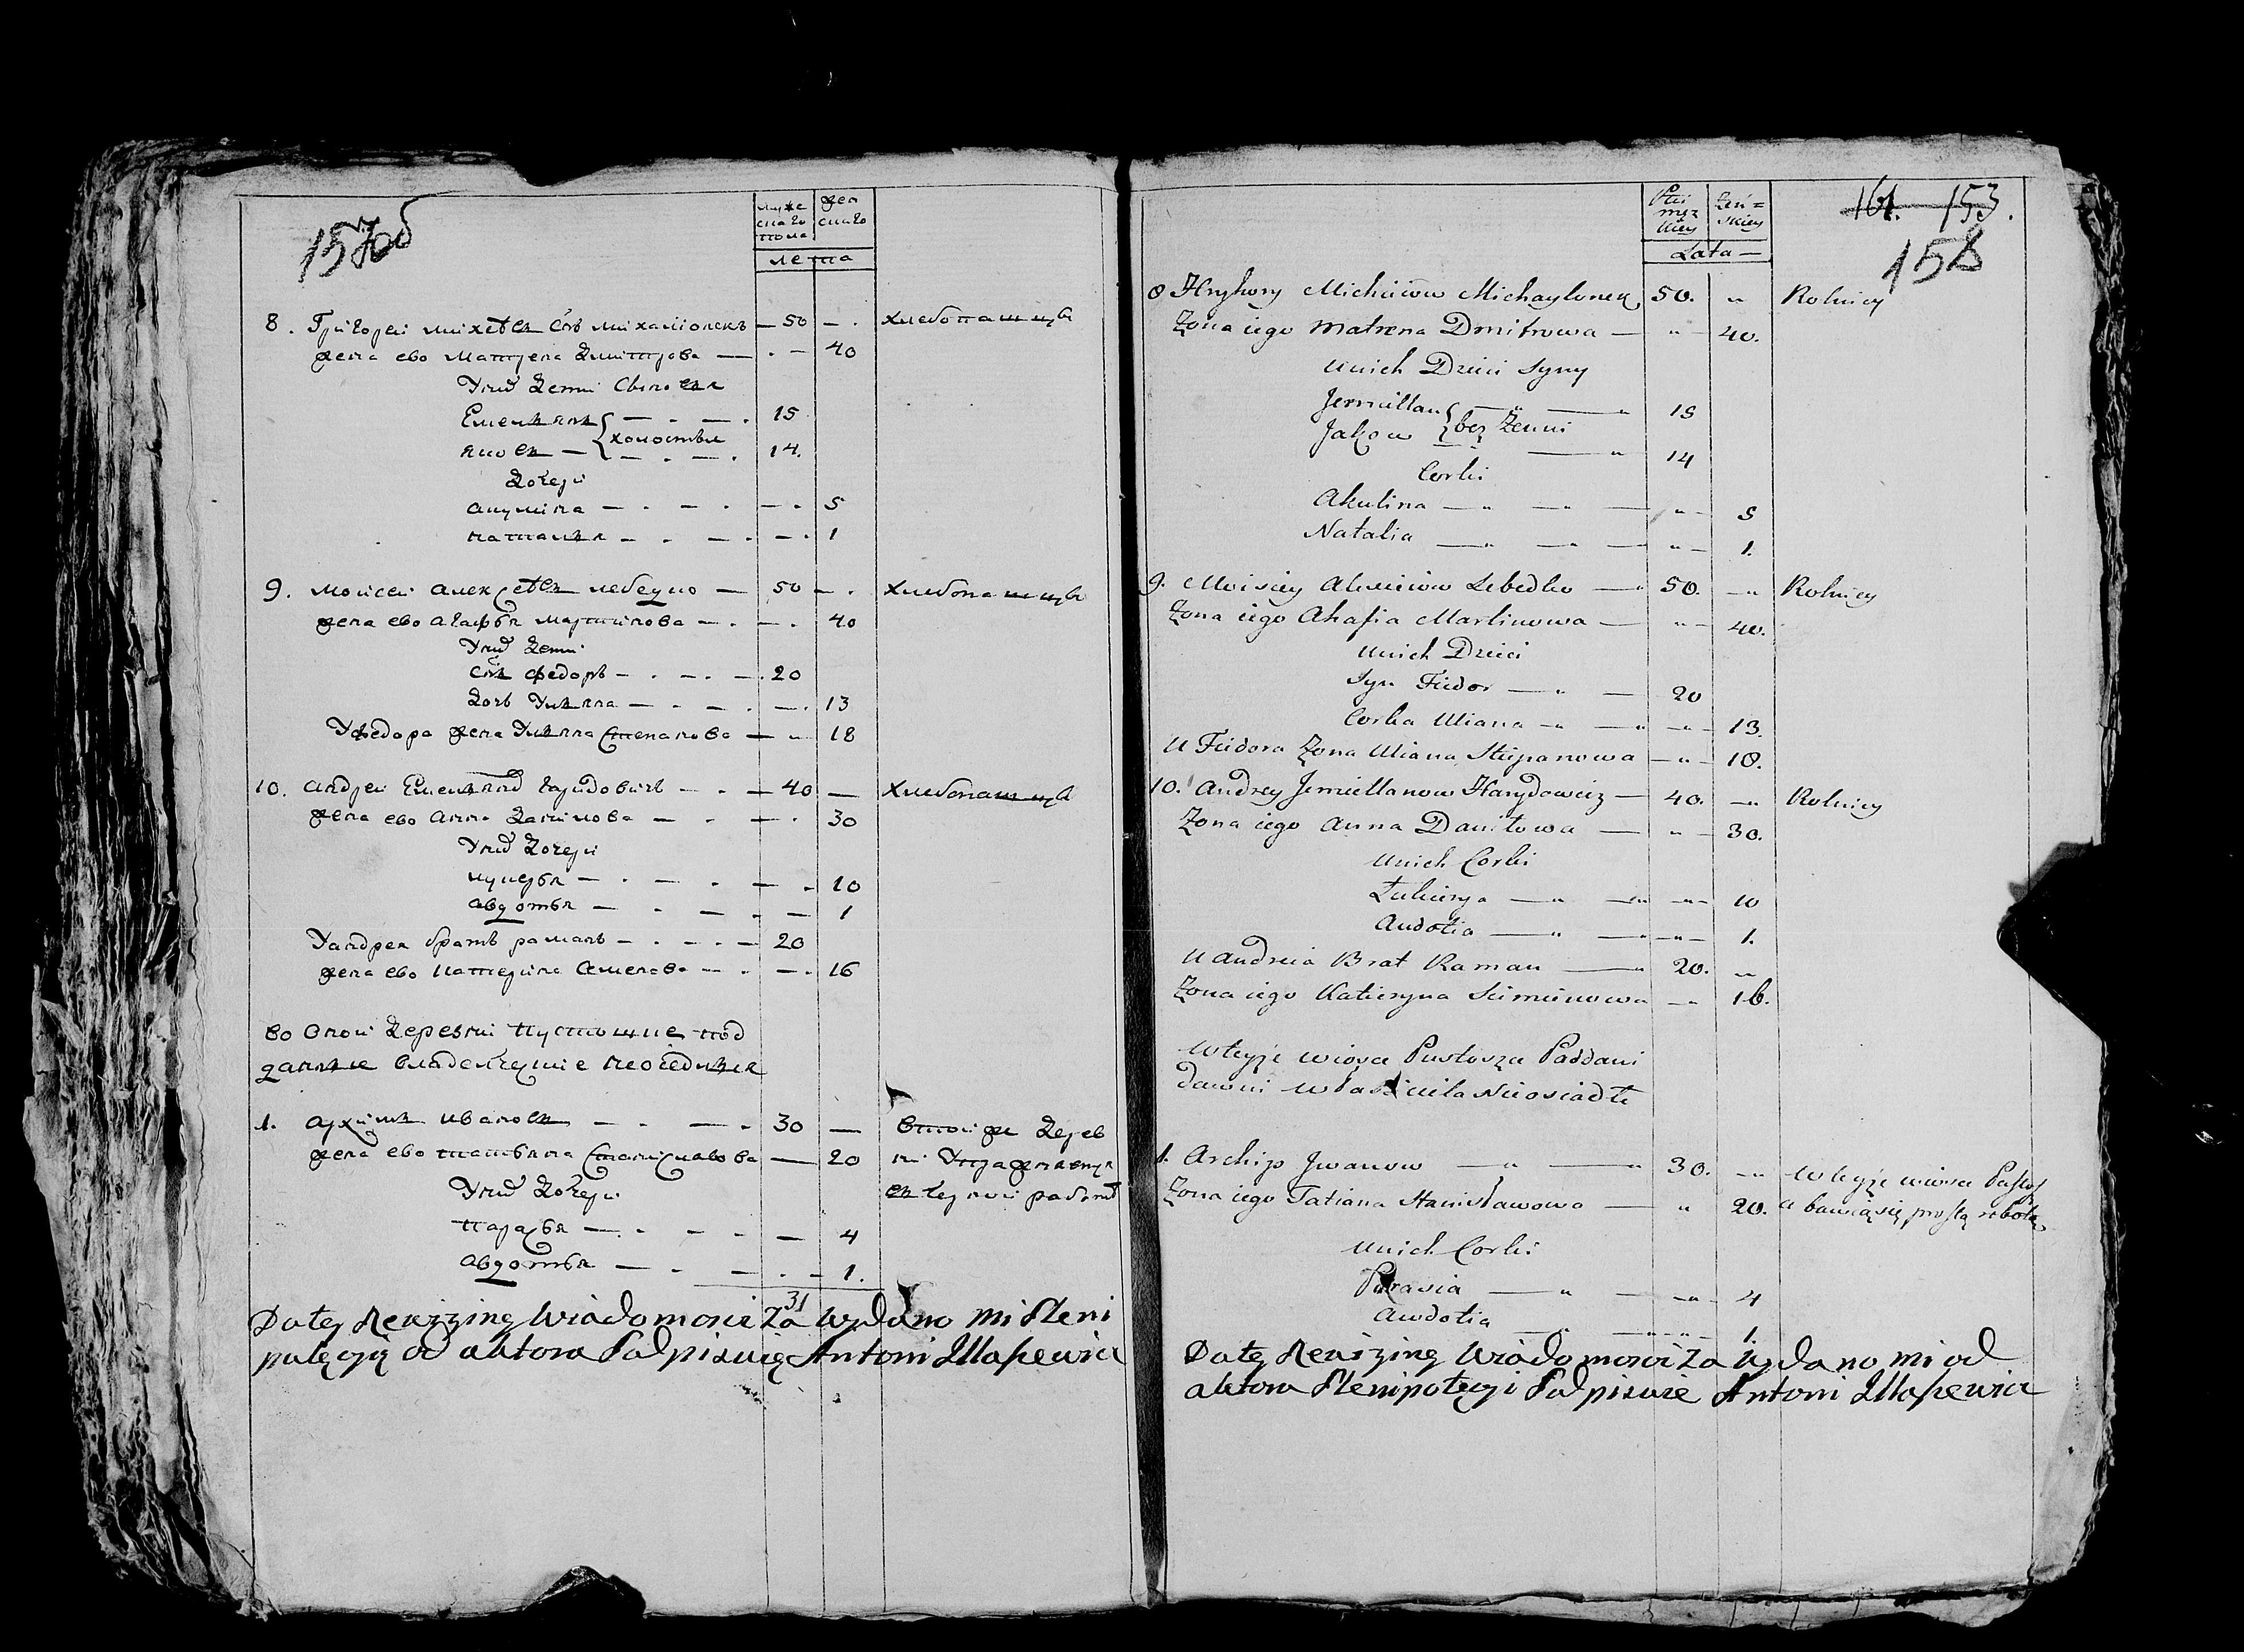 157об
муже скаго пола
жен скаго
лета
8. Григореи михеевъ снъ михаилонекъ — 50 — . хлебопашцы
жена ево матрена дмитрова — . — 40
У них дети Сыновя
Емельянъ — . — . 15
яковъ — холостые — . — . 14.
дочери
акулина — . — . — . 5
наталья — . — . — . 1
9. Моисеи алексеевъ лебедко — 50 — . хлебопашцы
жена ево агафья мартинова — . — . 40
У них дети
снъ федоръ — . — . — . 20
дочь Ульяна — . — . — . 13
У федора жена Ульяна Степанова — „ 18
10. андреи Емельянов гаридовичъ — . — 40 — хлебопашцы
жена ево анна данилова — . — . 30
У них дочери
лукерья — . — . — . 10
авдотья — . — . — 1
У андрея братъ раманъ — . — . — 20
жена ево катерина Семенова — . — . 16
во оной деревни пустошце под
даныие владелческие неоседлыя
1. архипъ ивановъ — . — . 30 — в тои же дерев
жена ево татьяна Станиславова — 20 ни Упражняютца
У них дочери въ черной работе
парасья — . — . — 4
авдотья — . — . — 1.
31
Do tey Rewizyiney Wiadomosci Za wydano mi Pleni
potęcyią od aktora Podpisuię Antoni Illasiewicz
Płci męz kiey
żeń= skiey
Lata —
161. 153.
158
8 Hryhory Michieiow Michaylonek 50. „ Rolnicy
Zona iego Matrena Dmitrowa — „ — 40.
U nich Dzieci Syny
Jermiellan — „ — „ 15
Jakow bez Zenni — „ 14
Corki
Akulina — „ — „ — „ — 5
Natalia — „ — „ — „ — 1.
9. Moisiey Alexieiow Lebedko — „ 50. — „ Rolnicy
Zona iego Ahafia Martinowa — „ — 40.
U nich Dzieci
Syn Fiedor — „ — 20
Corka Uliana — „ — „ — „ — 13.
U Fiedora Zona Uliana Stiepanowa — „ — 18.
10. Andrey Jemiellanow Harydowicz — 40. — „ Rolnicy
Zona iego Anna Daniłowa — „ — 30.
U nich Corki
Łukierya — „ — „ — „ — 10
Audotia — „ — „ — „ — 1.
U Andreia Brat Raman — „ 20. „
Zona iego Katieryna Siemienowa — „ 16.
W teyże wiosce Pustoszce Paddani
dawni własciciela Nieosiadłe
1. Archip Jwanow — „ — „ 30. — „ W teyże wiosce Pustosz
Zona iego Tatiana Stanisławowa — „ 20. a bawią się prostą robotą
U nich Corki
Parasia — „ — „ — 4
Awdotia — „ — „ — „ — 1.
Do tey Rewizyiney Wiadomosci Za wydano mi od
aktora Plenipotęcyi Podpisuie Antoni Illasiewicz